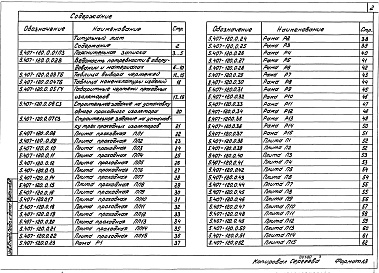 2
Содержание
Обозначение Наименование Стр.
Титульный лист
Содержание 2
5.407-120.0.01ПЗ Пояснительная записка
Ведомость потребности в
изделиях и материалах
5.407-120.0.03ТБ Таблица выбора чертежей
5.407-120.0.04ТБ Таблица номенклатуры изделий
5.407-120.0.05ГЧ Габаритный чертеж проходных
изоляторов
5.407-120.0.06СЗ Строительное задание на установку
одного проходного изолятора 20
5.407-120.0.07СЗ Строительное задание на установку
трех проходных изоляторов 21
5.407-120.0.08 Плита проходная ПП1 22
5.407-120.0.09 Плита проходная ПП2 23
5.407-120.0.10 Плита проходная ПП3 24
5.407-120.0.11 Плита проходная ПП4 25
5.407-120.0.12 Плита проходная ПП5 26
5.407-120.0.13 Плита проходная ПП6 27
5.407-120.0.14 Плита проходная ПП7 28
5.407-120.0.15 Плита проходная ПП8 29
5.407-120.0.16 Плита проходная ПП9 30
5.407-120.0.17 Плита проходная ПП10 31
5.407-120.0.18 Плита проходная ПП11 32
5.407-120.0.19 Плита проходная ПП12 33
5.407-120.0.20 Плита проходная ПП13 34
5.407-120.0.21 Плита проходная ПП14 35
5.407-120.0.22 Плита проходная ПП15 36
5.407-120.0.23 Рама Р1 37
Обозначение Наименование Стр.
5.407-120.0.24 Рама Р2 38
5.407-120.0.25 Рама Р3 39
5.407-120.0.26 Рама Р4 40
5.407-120.0.27 Рама Р5 41
5.407-120.0.28 Рама Р6 42
5.407-120.0.29 Рама Р7 43
5.407-120.0.30 Рама Р8 44
5.407-120.0.31 Рама Р9 45
5.407-120.0.32 Рама Р10 46
5.407-120.0.33 Рама Р11 47
5.407-120.0.34 Рама Р12 48
5.407-120.0.35 Рама Р13 49
5.407-120.0.36 Рама Р14 50
5.407-120.0.37 Рама Р15 51
5.407-120.0.38 Плита П1 52
5.407-120.0.39 Плита П2 52
5.407-120.0.40 Плита П3 53
5.407-120.0.41 Плита П4 53
5.407-120.0.42 Плита П5 54
5.407-120.0.43 Плита П6 54
5.407-120.0.44 Плита П7 55
5.407-120.0.45 Плита П8 55
5.407-120.0.46 Плита П9 56
5.407-120.0.47 Плита П10 57
5.407-120.0.48 Плита П11 58
5.407-120.0.49 Плита П12 59
5.407-120.0.50 Плита П13 60
5.407-120.0.51 Плита П14 61
5.407-120.0.52 Плита П15 62
Копировал Сергеева Формат А3